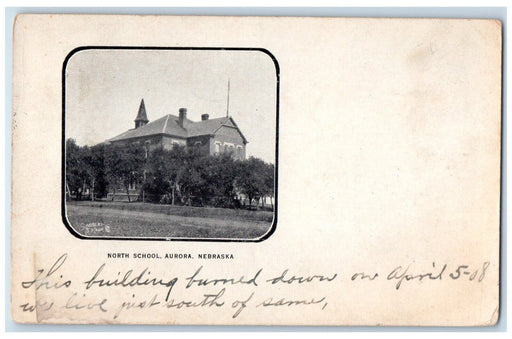 NORTH SCHOOL, AURORA, NEBRASKA
This building burned down on April 5-08
we live just south of same,